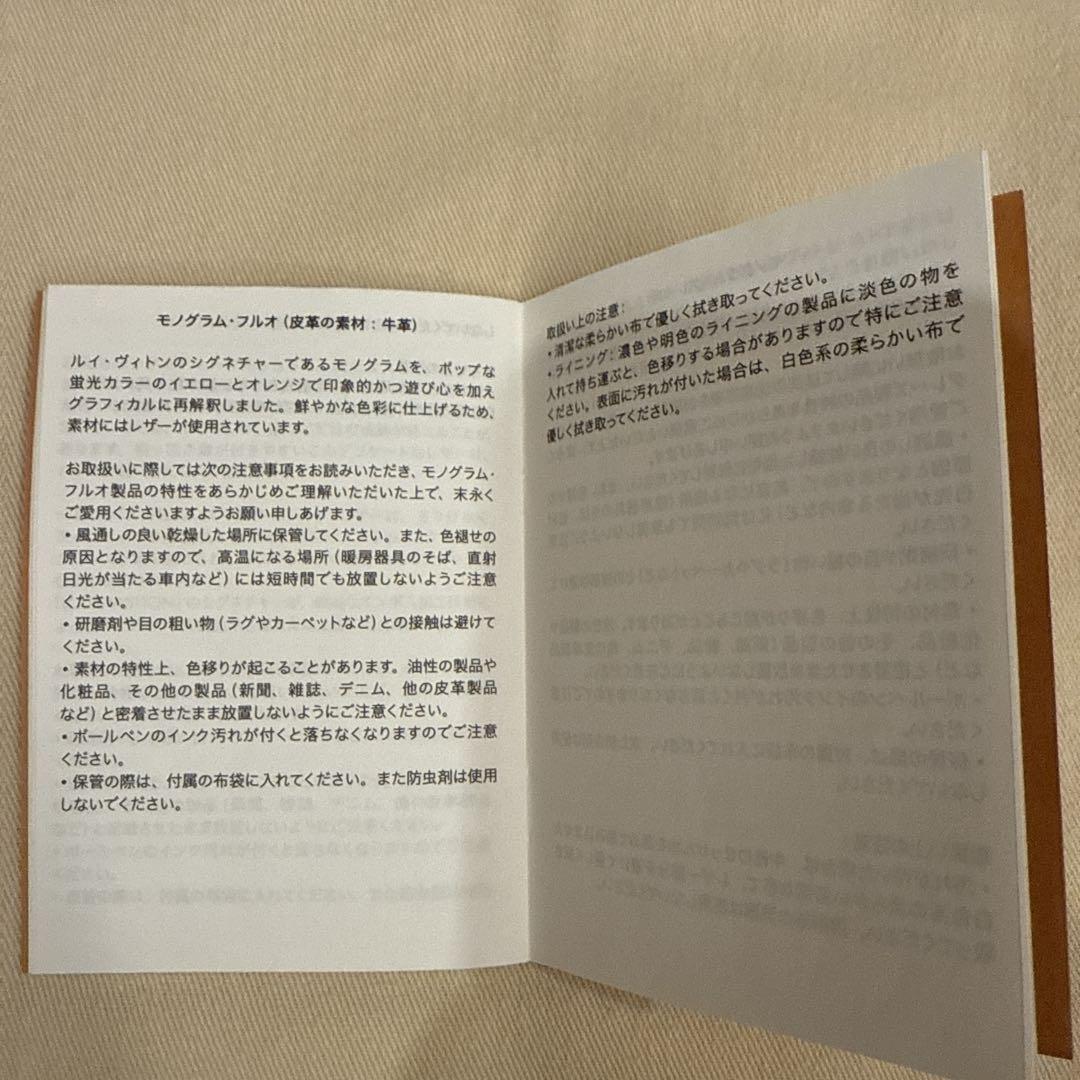 モノグラム・フルオ（皮革の素材：牛革）
ルイ・ヴィトンのシグネチャーであるモノグラムを、ポップな
蛍光カラーのイエローとオレンジで印象的かつ遊び心を加え
グラフィカルに再解釈しました。鮮やかな色彩に仕上げるため、
素材にはレザーが使用されています。
お取扱いに際しては次の注意事項をお読みいただき、モノグラム・
フルオ製品の特性をあらかじめご理解いただいた上で、末永く
ご愛用くださいますようお願い申しあげます。
・風通しの良い乾燥した場所に保管してください。また、色褪せの
原因となりますので、高温になる場所（暖房器具のそば、直射
日光が当たる車内など）には短時間でも放置しないようご注意
ください。
・研磨剤や目の粗い物（ラグやカーペットなど）との接触は避けて
ください。
・素材の特性上、色移りが起こることがあります。油性の製品や
化粧品、その他の製品（新聞、雑誌、デニム、他の皮革製品
など）と密着させたまま放置しないようにご注意ください。
・ボールペンのインク汚れが付くと落ちなくなりますのでご注意
ください。
・保管の際は、付属の布袋に入れてください。また防虫剤は使用
しないでください。
取扱い上の注意：
・清潔な柔らかい布で優しく拭き取ってください。
・ライニング：濃色や明色のライニングの製品に淡色の物を
入れて持ち運ぶと、色移りする場合がありますので特にご注意
ください。表面に汚れが付いた場合は、白色系の柔らかい布で
優しく拭き取ってください。